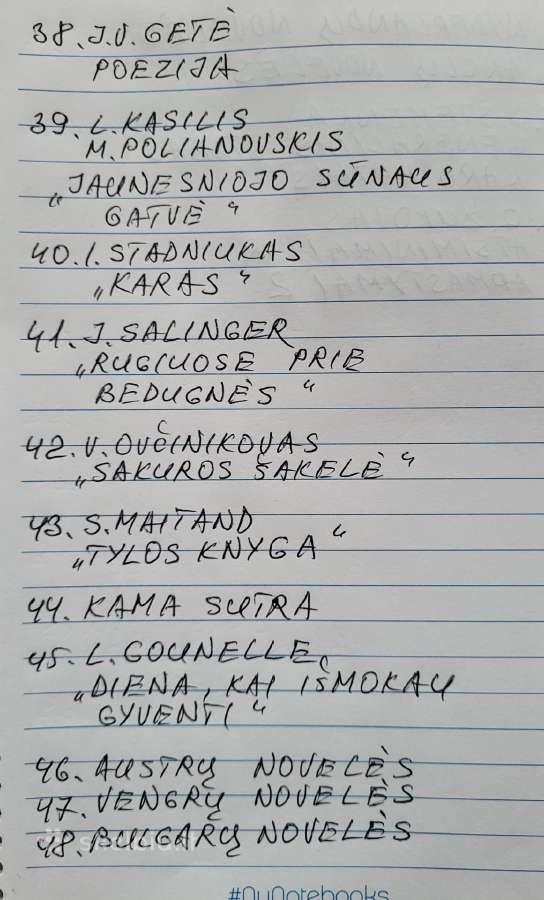 38. J.V. GETĖ
POEZIJA
39. L. KASILIS
M. POLIANOVSKIS
„JAUNESNIOJO SŪNAUS
GATVĖ“
40. I. STADNIUKAS
„KARAS“
41. J. SALINGER
„RUGIUOSE PRIE
BEDUGNĖS“
42. V. OVČINIKOVAS
„SAKUROS ŠAKELĖ“
43. S. MAITAND
„TYLOS KNYGA“
44. KAMA SUTRA
45. L. GOUNELLE
„DIENA, KAI IŠMOKAU
GYVENTI“
46. AUSTRŲ NOVELĖS
47. VENGRŲ NOVELĖS
48. BULGARŲ NOVELĖS